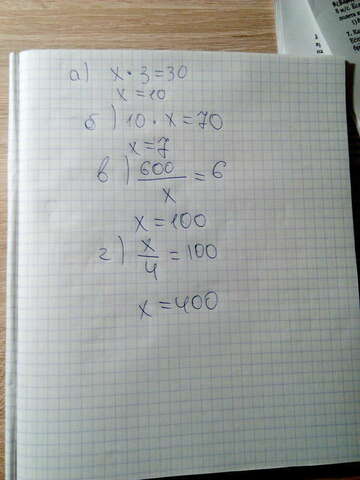 а) x · 3 = 30
x = 10
б) 10 · x = 70
x = 7
в) 600/x = 6
x = 100
г) x/4 = 100
x = 400